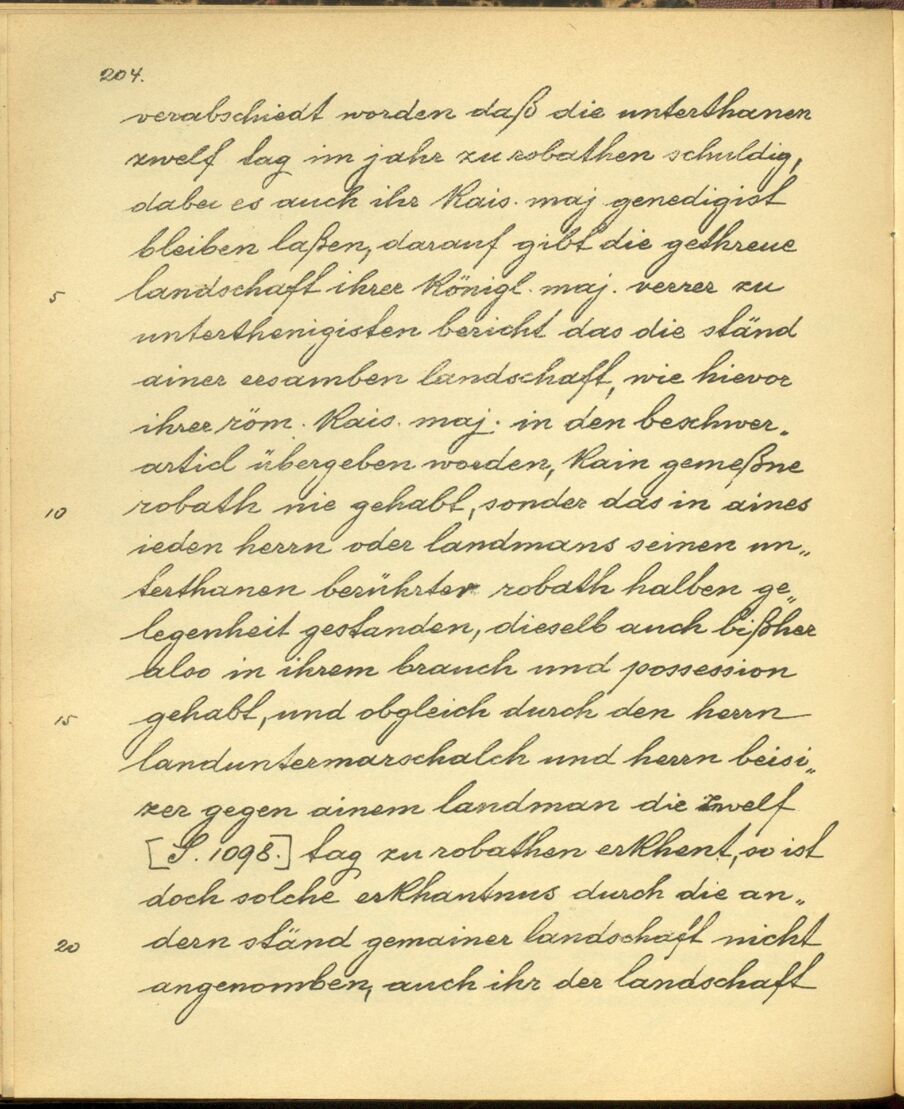 204.
verabschiedt worden daß die unterthanen
zwelf tag im jahr zu robathen schuldig,
dabei es auch ihr Kais. maj genedigist
bleiben laßen, darauf gibt die gethreue
5 landschaft ihrer Königl. maj. verrer zu
unterthenigisten bericht das die ständ
ainer ersamben landschaft, wie hievor
ihrer röm. Kais. maj. in den beschwer„
articl übergeben worden, Kain gemeßne
10 robath nie gehabt, sonder das in aines
ieden herrn oder landmans seinen un„
terthanen berührter robath halben ge„
legenheit gestanden, dieselb auch bißher
also in ihrem brauch und possession
15 gehabt, und obgleich durch den herrn
landuntermarschalch und herrn beisi„
zer gegen ainem landman die zwelf
[S. 1098.] tag zu robathen erKhent, so ist
doch solche erKhantnus durch die an„
20 dern ständ gemainer landschaft nicht
angenomben, auch ihr der landschaft